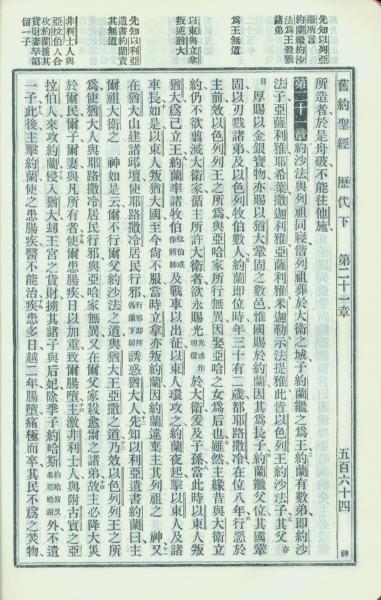 舊約聖經 歷代下 第二十一章 五百六十四 神
約蘭繼約沙
法為王殺戮
諸弟
為王無道
以東與立拿
叛猶大
先知以利亞
遺書約蘭責
其無道
非利士人與
亞拉伯人合
攻約蘭擄其
貨財妻孥第
留一子
所造者於是舟破不能往他施
第二十一章 約沙法與列祖同寢偕列祖葬於大衛之城子約蘭繼之為王約蘭有數弟即約沙
法子亞薩利雅耶歇葉撒迦利雅亞薩利雅米迦勒示法提雅此皆以色列王約沙法子其父
厚賜以金銀寶物亦賜以猶大鞏固之數邑惟國賜於約蘭因其為長子約蘭繼父位其國鞏
固以刃戮諸弟及以色列牧伯數人約蘭即位時年三十有二歲都耶路撒冷在位八年行惡於
主前效以色列列王之所為與亞哈家所行無異因娶亞哈之女為后也雖然主緣昔與大衛立
約仍不欲翦滅大衛家循主所許大衛者欲永賜光明 於大衛爰及子孫當此時以東人叛
猶大為己立王約蘭率諸牧伯 及戰車以出征以東人環攻之約蘭夜起擊以東人及諸
車長如是以東人叛猶大國至今尚不服當時立拿亦叛約蘭因約蘭違棄主其列祖之 神又
在猶大山建諸邱壇使耶路撒冷居民行邪 誘惑猶大人先知以利亞遺書約蘭曰主
爾祖大衛之 神如是云爾不行爾父約沙法之道與猶大王亞撒之道乃效以色列列王之所
為使猶大人與耶路撒冷居民行邪與亞哈家無異又在爾父家殺愈爾之諸弟故主必降大災
於爾民爾子爾妻與凡所有者使爾患腸疾日以加重致爾腸墮主激非利士人與附古實之亞
拉伯人來攻約蘭侵入猶大刼王宮之貨財擄其諸子與后妃除季子約哈斯 外不遺
一子此後主擊約蘭使之患腸疾醫不能治疾患多日越二年腸墮痛極而卒其民不為之焚物